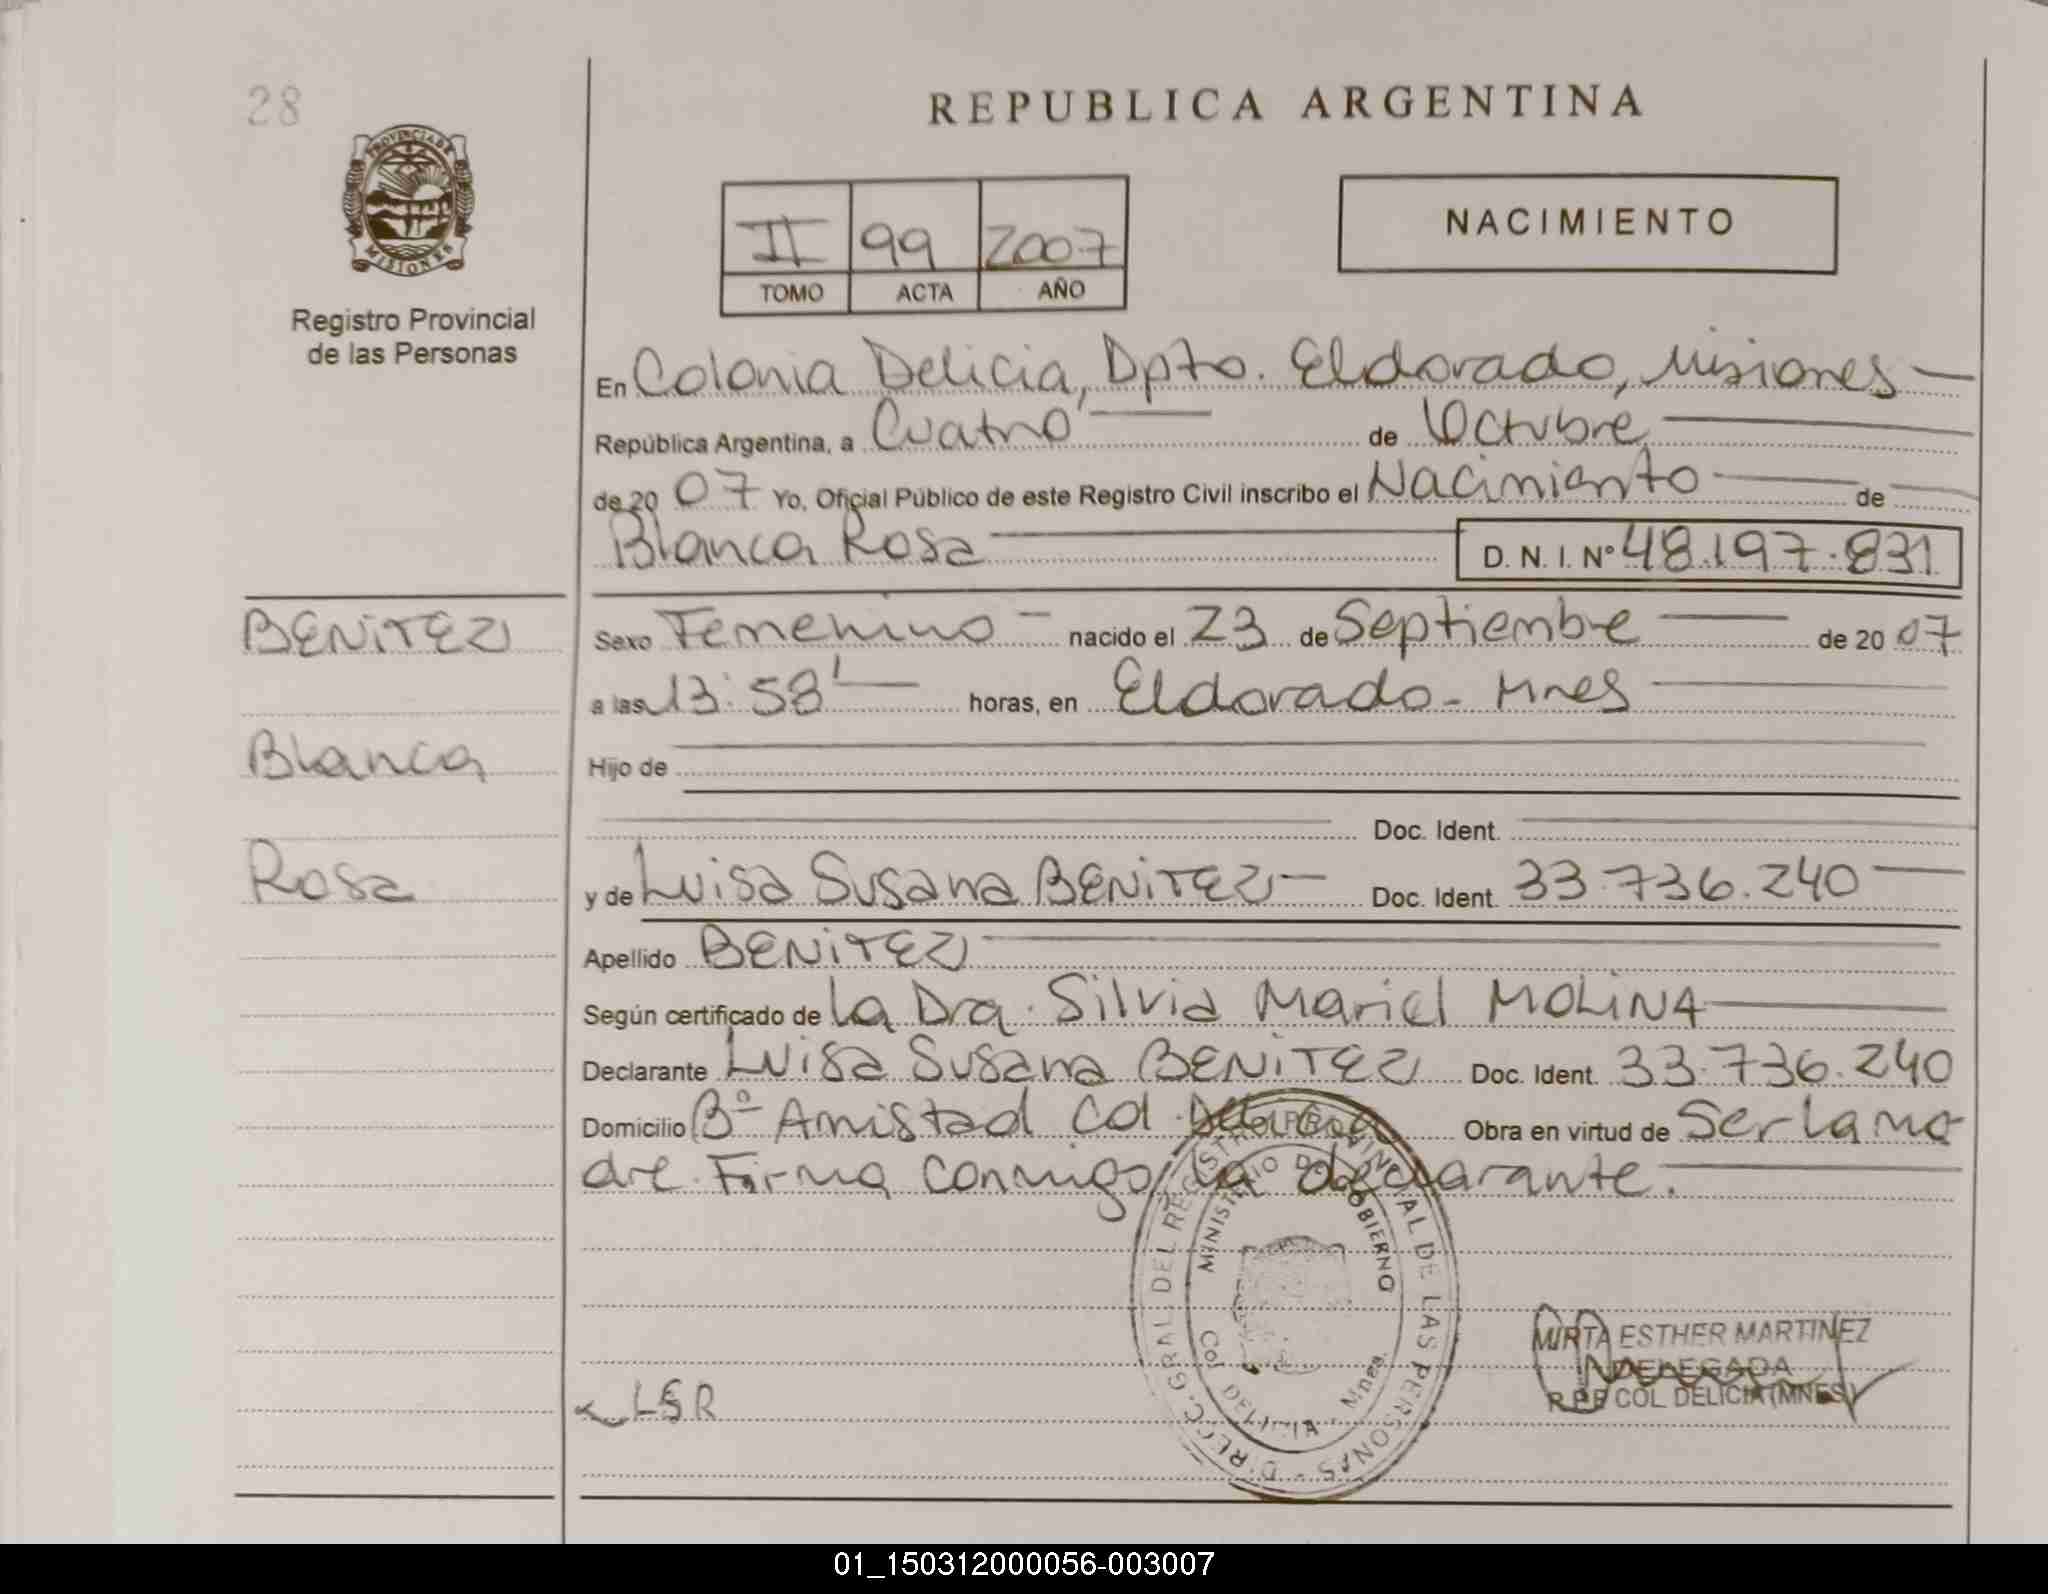 28
REPUBLICA ARGENTINA
PROVINCIA DE
MISIONES
Registro Provincial
de las Personas
II 99 2007
TOMO ACTA AÑO
NACIMIENTO
En Colonia Delicia, Dpto. Eldorado, Misiones
República Argentina, a Cuatro de Octubre
de 20 07 Yo, Oficial Público de este Registro Civil inscribo el Nacimiento de
Blanca Rosa D. N. I. Nº 48.197.831
BENITEZ
Blanca
Rosa
Sexo Femenino nacido el 23 de Septiembre de 20 07
a las 13:58' horas, en Eldorado - Mnes
Hijo de
Doc. Ident.
y de Luisa Susana BENITEZ Doc. Ident. 33.736.240
Apellido BENITEZ
Según certificado de la Dra. Silvia Mariel MOLINA
Declarante Luisa Susana BENITEZ Doc. Ident. 33.736.240
Domicilio Bº Amistad Col. Delicia Obra en virtud de Ser la ma
dre. Firma conmigo la declarante.
DIRECC. GRAL. DEL REGISTRO PROVINCIAL DE LAS PERSONAS
MINISTERIO DE GOBIERNO
Col. DELICIA - Mnes.
MIRTA ESTHER MARTINEZ
DELEGADA
R.P.P COL DELICIA (MNES)
LSR
01_150312000056-003007